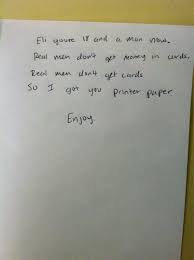 Eli youre 18 and a man now.
Real men don't get money in cards.
Real men don't get cards
So I got you printer paper
Enjoy.